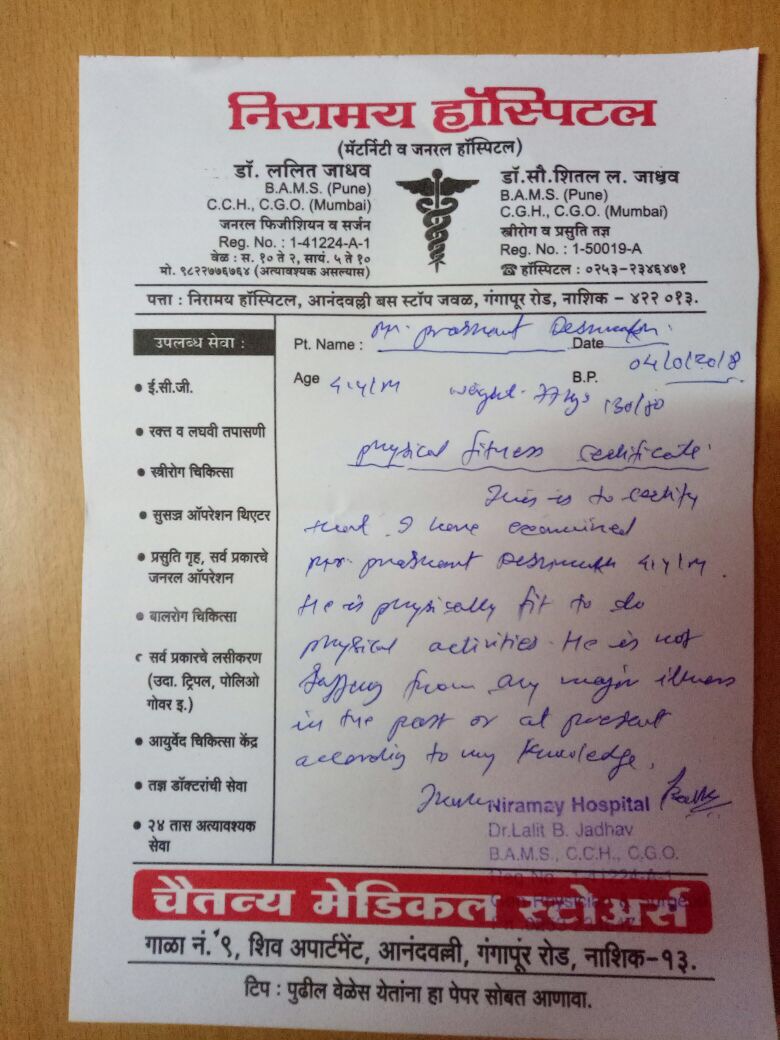 निरामय हॉस्पिटल
(मॅटर्निटी व जनरल हॉस्पिटल)
डॉ. ललित जाधव
B.A.M.S. (Pune)
C.C.H., C.G.O. (Mumbai)
जनरल फिजीशियन व सर्जन
Reg. No. : 1-41224-A-1
वेळ : स. १० ते २, सायं. ५ ते १०
मो. ९८२२७७६७६४ (अत्यावश्यक असल्यास)
डॉ.सौ.शितल ल. जाधव
B.A.M.S. (Pune)
C.G.H., C.G.O. (Mumbai)
स्त्रीरोग व प्रसुति तज्ञ
Reg. No. : 1-50019-A
☎ हॉस्पिटल : ०२५३-२३४६४७१
पत्ता : निरामय हॉस्पिटल, आनंदवल्ली बस स्टॉप जवळ, गंगापूर रोड, नाशिक - ४२२ ०१३.
उपलब्ध सेवा :
• ई.सी.जी.
• रक्त व लघवी तपासणी
• स्त्रीरोग चिकित्सा
• सुसज्ज ऑपरेशन थिएटर
• प्रसुति गृह, सर्व प्रकारचे
जनरल ऑपरेशन
• बालरोग चिकित्सा
• सर्व प्रकारचे लसीकरण
(उदा. ट्रिपल, पोलिओ
गोवर इ.)
• आयुर्वेद चिकित्सा केंद्र
• तज्ञ डॉक्टरांची सेवा
• २४ तास अत्यावश्यक
सेवा
Pt. Name : Mr. Prashant Deshmukh.
Date
Age
B.P. 130/80
weight.
physical fitness certificate.
This is to certify
that I have examined
Mr. Prashant Deshmukh
He is physically fit to do
physical activities. He is not
from any major illness
in the past or at present
according to my knowledge.
Niramay Hospital
Dr.Lalit B. Jadhav
B.A.M.S., C.C.H., C.G.O.
चैतन्य मेडिकल स्टोअर्स
गाळा नं. ९, शिव अपार्टमेंट, आनंदवल्ली, गंगापूर रोड, नाशिक-१३.
टिप : पुढील वेळेस येतांना हा पेपर सोबत आणावा.